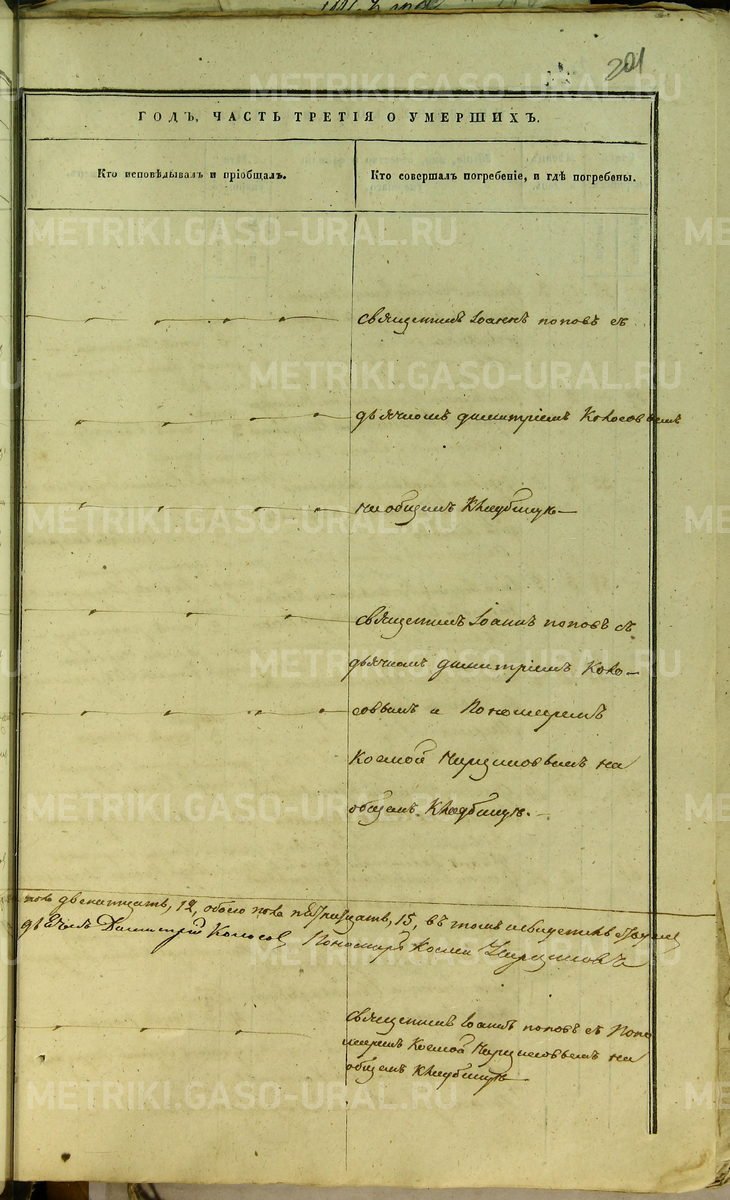 201
ГОДЪ, ЧАСТЬ ТРЕТІЯ О УМЕРШИХЪ.
Кто исповѣдывалъ и пріобщалъ.
Кто совершалъ погребеніе, и гдѣ погребены.
священникъ Іоаннъ поповъ съ
дьячкомъ димитріемъ Колосовымъ
на общемъ Кладбищѣ
священникъ Іоаннъ поповъ съ
дьячкомъ димитріемъ Коло-
совымъ и Пономаремъ
Космой на
общемъ Кладбищѣ.
двенатцать, 12, обоего пола пятнатцать, 15, въ томъ
дьячекъ Димитрій Колосов Пономарь Косма
священникъ Іоаннъ поповъ съ Поно
маремъ Космой на
общемъ Кладбищѣ
METRIKI.GASO-URAL.RU